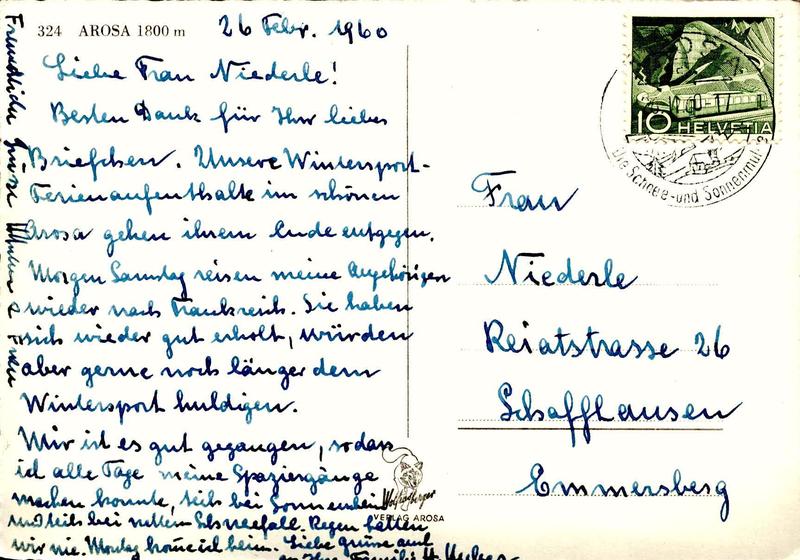 324 AROSA 1800 m
26 Febr. 1960
Liebe Frau Niederle!
Besten Dank für Ihr liebes
Briefchen. Unsere Wintersport-
Ferienaufenthalte im schönen
Arosa gehen ihrem Ende entgegen.
Morgen Samstag reisen meine Angehörigen
wieder nach Frankreich. Sie haben
sich wieder gut erholt, würden
aber gerne noch länger dem
Wintersport huldigen.
Mir ist es gut gegangen, sodass
ich alle Tage meine Spaziergänge
machen konnte, teils bei Sonnenschein
und teils bei nettem Schneefall. Regen hatten
wir nie. Montag komme ich heim. Liebe Grüsse auch
an Ihre Familie
Freundliche Grüsse
VERLAG AROSA
10 HELVETIA
Die Schnee- und Sonnen
Frau
Niederle
Reiatstrasse 26
Schaffhausen
Emmersberg